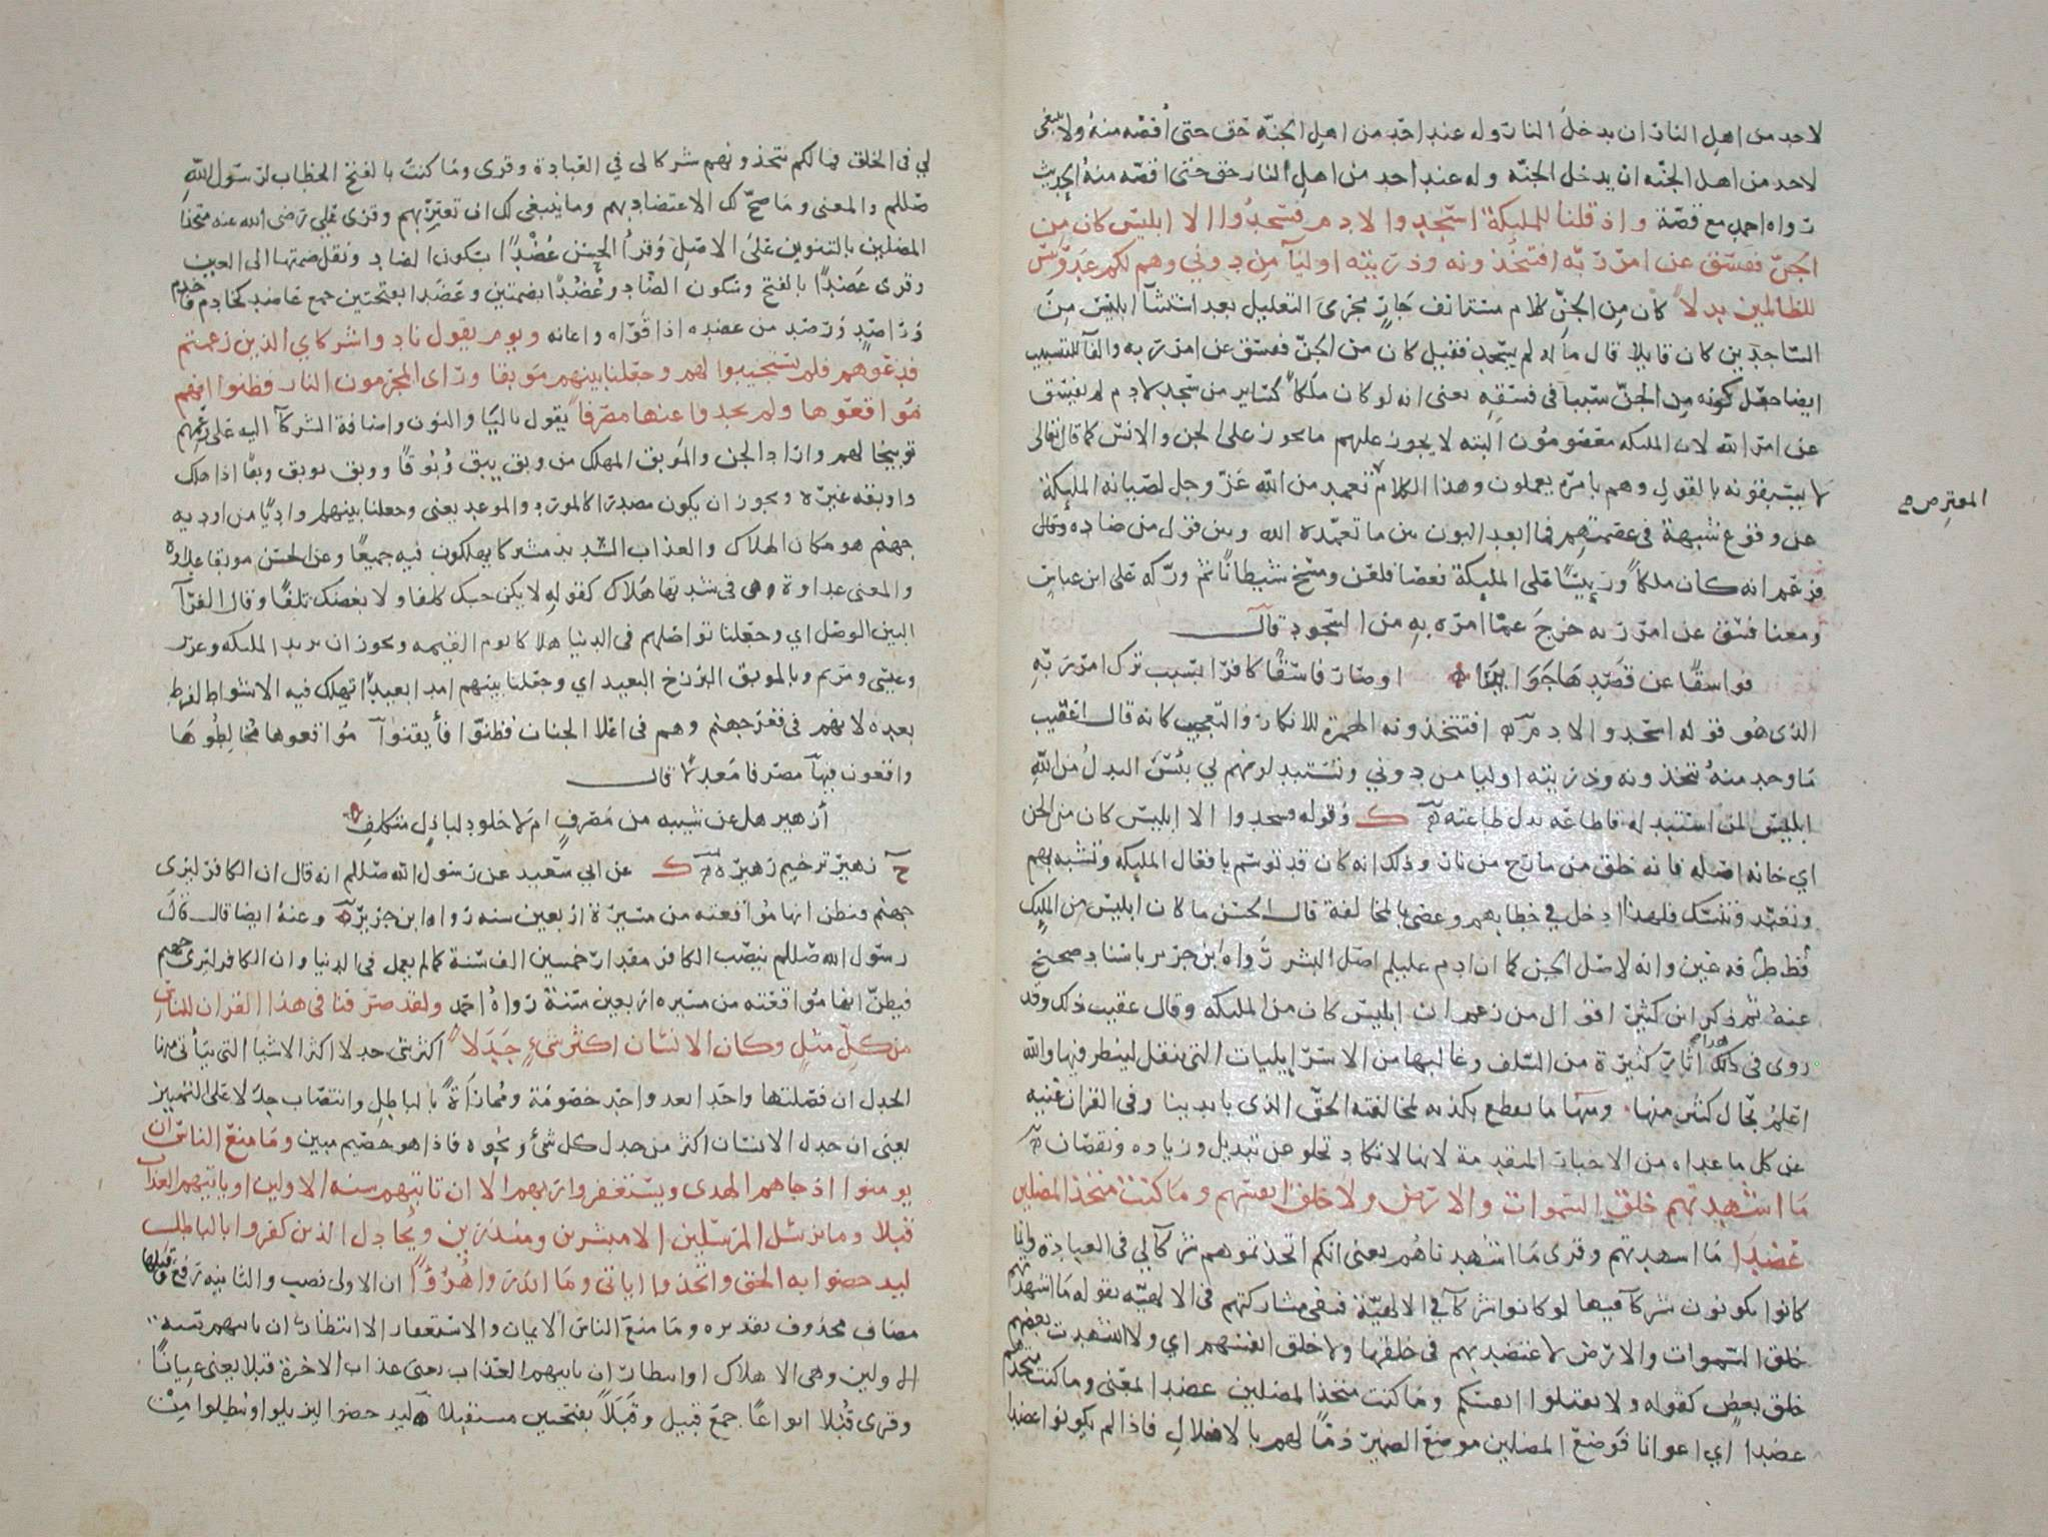 لاحد من اهل النار ان يدخل النار وله عند احد من اهل الجنه حق حتى أقصه منه ولا ينبغى
لاحد من اهل الجنه ان يدخل الجنه وله عند احد من اهل النار حق حتى اقصه منه الحديث
رواه احمد مع قصة واذ قلنا للمليكة اسجدوا لادم فسجدوا الا ابليس كان من
الجن ففسق عن امر ربه افتتخذونه وذريته اوليآ من دوني وهم لكم عدو بئس
للظالمين بدلا كان من الجن كلام مستانف جار مجرى التعليل بعد استثنآ ابليس من
الساجدين كان قايلا قال ما له لم يسجد فقيل كان من الجن ففسق عن امر ربه والفآ للتسبيب
ايضا جعل كونه من الجن سببا في فسقه يعنى انه لو كان ملكا كساير من سجد لادم لم يفسق
عن امر الله لان المليكه معصومون البته لا يجوز عليهم ما يجوز على الجن والانس كما قال تعالى
لا يسبقونه بالقول وهم بامره يعملون وهذا الكلام تعمد من الله عز وجل لصيانه المليكة
المعترض صح
عن وقوع شبهة في عصمتهم فما ابعد البون بين ما تعمده الله وبين قول من ضاده وقال
فزعم انه كان ملكا وريسا على المليكة فعصا فلعن ومسخ شيطانا ثم وركه على ابن عباس
ومعنا فسق عن امر ربه خرج عما امره به من السجود قال
فواسقا عن قصدها جوايرا او صار فاسقا كافرا بسبب ترك امر ربه
الذى هو قوله اسجدوا لادم افتتخذونه الهمزة للانكار والتعجيب كانه قال اعقيب
ما وجد منه تتخذونه وذريته اوليا من دوني وتستبدلونهم بي بئس البدل من الله
ابليس لمن استبدله فاطاعه بدل طاعته ك وقوله فسجدوا الا ابليس كان من الجن
اي خانه اصله فانه خلق من مارج من نار وذلك انه كان قد توسم بافعال المليكه وتشبه بهم
وتعبد وتنسك فلهذا ادخل في خطابهم وعصى بالمخالفة قال الحسن ما كان ابليس من المليكه
قط طرفه عين وانه لاصل الجن كما ان ادم عليلم اصل البشر رواه ابن جرير باسناد صحيح
عنه ثم ذكر ابن كثير اقوال من زعم ان ابليس كان من المليكه وقال عقيب ذلك وقد
روى في ذلك اثار كثيرة من السلف وغالبها من الاسرايليات التى تنقل لينظر فيها والله
اعلم بحال كثير منها ومنها ما يقطع بكذبه لمخالفته الحق الذى بايدينا وفي القران غنيه
عن كل ما عداه من الاخبار المتقدمة لانها لا تكاد تخلو عن تبديل وزياده ونقصان
ما اشهدتهم خلق السموات والارض ولا خلق انفسهم وما كنت متخذ المضلين
عضدا ما اشهدتهم وقرى ما اشهدناهم يعنى انكم اتخذتموهم شركآ لي في العبادة وانما
كانوا يكونون شركآ فيها لو كانوا شركآ في الالهية فنفى مشاركتهم في الالهيه بقوله ما اشهدتهم
خلق السموات والارض لاعتضد بهم في خلقها ولا خلق انفسهم اي ولا اشهدت بعضهم
خلق بعض كقوله ولا تقتلوا انفسكم وما كنت متخذ المضلين عضدا المعنى وما كنت متخذهم
عضدا اي اعوانا فوضع المضلين موضع الضمير ذما لهم بالاضلال فاذا لم يكونوا عضدا
لي في الخلق فما لكم تتخذونهم شركا لى في العبادة وقرى وما كنت بالفتح الخطاب لرسول الله
صللم والمعنى وما صح لك الاعتضاد بهم وما ينبغى لك ان تعتز بهم وقرى على رضى الله عنه متخذا
المضلين بالتنوين على الاصل وقرأ الحسن عضدا بسكون الضاد ونقل ضمتها الى العين
وقرى عضدا بالفتح وسكون الضاد وعضدا بضمتين وعضدا بفتحتين جمع عاضد كخادم وخدم
وراصد ورصد من عضده اذا قواه واعانه ويوم يقول نادوا شركاي الذين زعمتم
فدعوهم فلم يستجيبوا لهم وجعلنا بينهم موبقا وراى المجرمون النار فظنوا انهم
مواقعوها ولم يجدوا عنها مصرفا يقول باليا والنون واضافة الشركآ اليه على زعمهم
توبيخا لهم واراد الجن والموبق المهلك من وبق يبق وبوقا ووبق يوبق وبقا اذا هلك
واوبقه غيره ويجوز ان يكون مصدرا كالمورد والموعد يعنى وجعلنا بينهم واديا من اودية
جهنم هو مكان الهلاك والعذاب الشديد مشتركا يهلكون فيه جميعا وعن الحسن موبقا عداوة
والمعنى عداوة هى في شدتها هلاك كقوله لا يكن حبك كلفا ولا بغضك تلفا وقال الفرآ
البين الوصل اي وجعلنا تواصلهم في الدنيا هلاكا يوم القيمه ويجوز ان يريد المليكه وعزير
وعيسى ومريم وبالموبق البرزخ البعيد اي وجعلنا بينهم امدا بعيدا تهلك فيه الاشواط لفرط
بعده لانهم في قعر جهنم وهم في اعلا الجنان فظنوا فأيقنوا مواقعوها مخالطوها
واقعون فيها مصرفا معدلا قال
أزهير هل عن شيبه من مصرف ام لا خلود لباذل متكلف
ح زهير ترخيم زهيرة ك عن ابي سعيد عن رسول الله صللم انه قال ان الكافر ليرى
جهنم فيظن انها مواقعته من مسيرة اربعين سنه رواه ابن جرير وعنه ايضا قال قال
رسول الله صللم ينصب الكافر مقدار خمسين الف سنة كما لم يعمل في الدنيا وان الكافر ليرى جهنم
فيظن انها مواقعته من مسيره اربعين سنة رواه احمد ولقد صرفنا في هذا القران للناس
من كل مثل وكان الانسان اكثر شيء جدلا اكثر شى جدلا اكثر الاشيا التى يتأتى منها
الجدل ان فصلتها واحدا بعد واحد خصومة ومماراة بالباطل وانتصاب جدلا على التمييز
يعنى ان جدل الانسان اكثر من جدل كل شئ ونحوه فاذا هو خصيم مبين وما منع الناس ان
يومنوا اذ جاهم الهدى ويستغفروا ربهم الا ان تاتيهم سنه الاولين او ياتيهم العذاب
قبلا وما نرسل المرسلين الا مبشرين ومنذرين ويجادل الذين كفروا بالباطل
ليدحضوا به الحق واتخذوا اياتى وما انذروا هزؤا ان الاولى نصب والثانيه رفع وقبلها
مضاف محذوف تقديره وما منع الناس الايمان والاستغفار الا انتظار ان تاتيهم سنة
الاولين وهى الاهلاك او انتظار ان ياتيهم العذاب يعنى عذاب الاخرة قبلا يعنى عيانا
وقرى قبلا انواعا جمع قبيل وقبلا بفتحتين مستقبلا ليدحضوا ليزيلوا ويبطلوا من